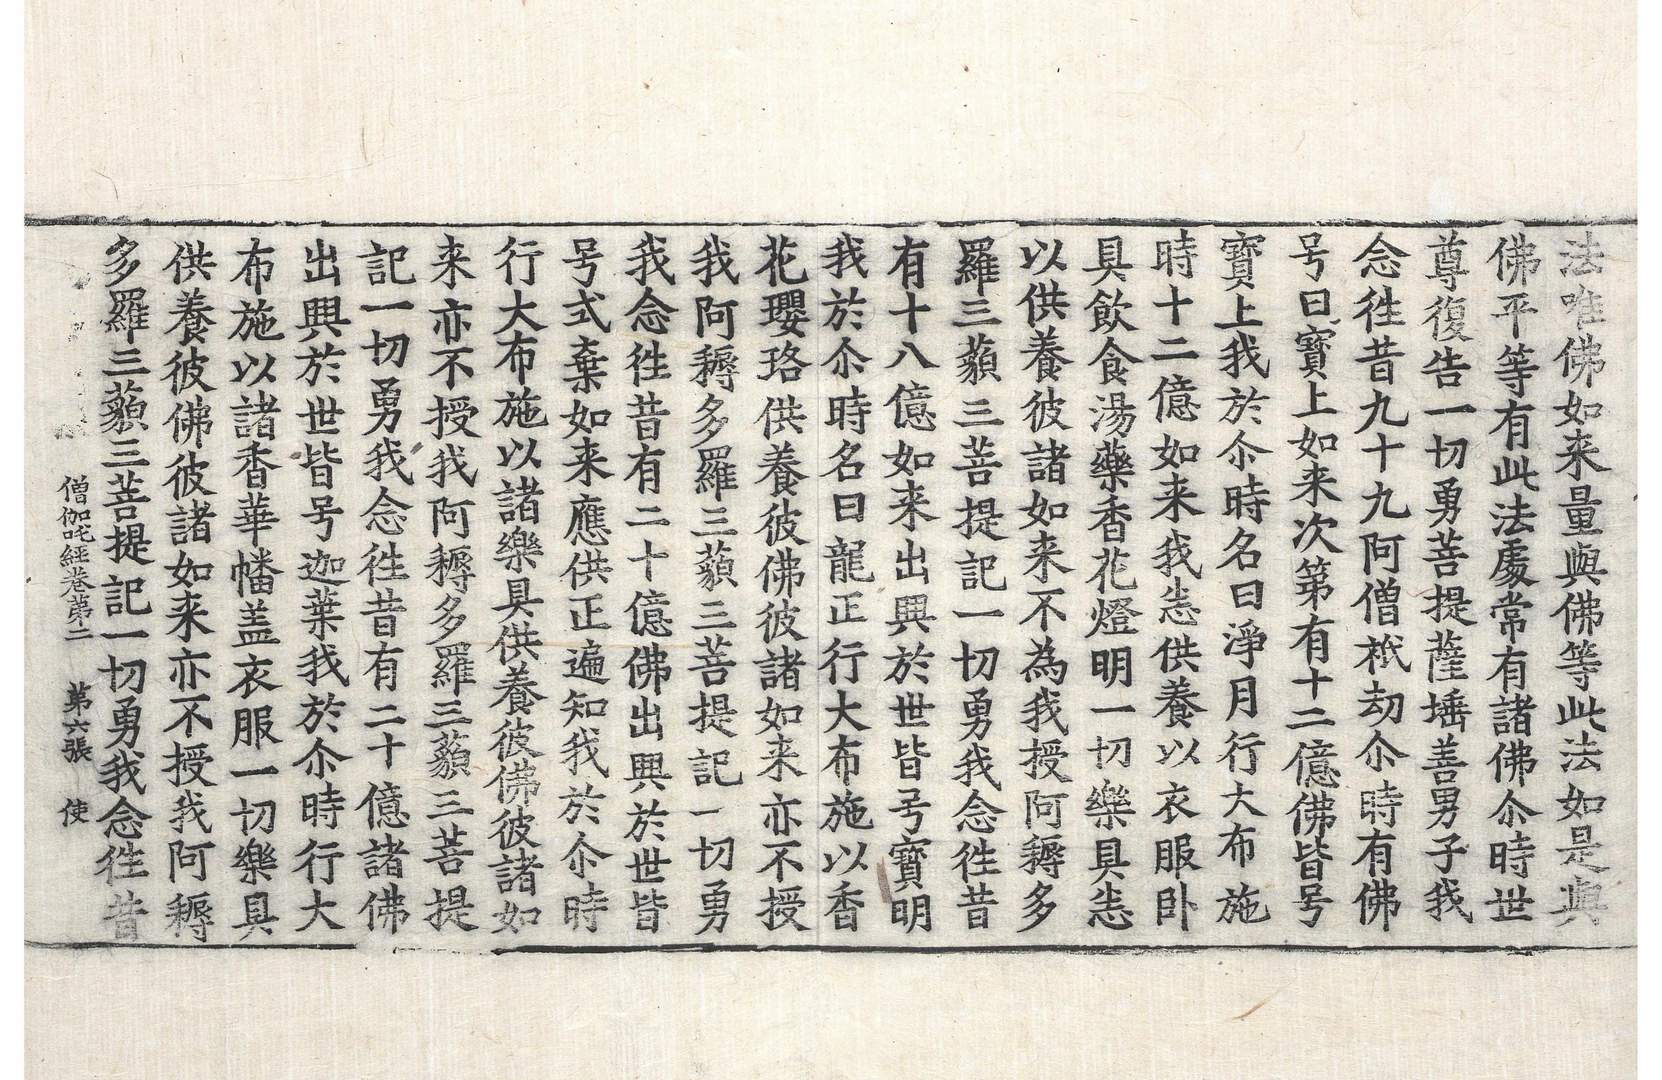 法唯佛如来量與佛等此法如是與
佛平等有此法處常有諸佛尒時世
尊復告一切勇菩提薩埵善男子我
念徃昔九十九阿僧祇劫尒時有佛
号曰寶上如来次第有十二億佛皆号
寶上我於尒時名曰淨月行大布施
時十二億如来我悉供養以衣服卧
具飲食湯藥香花燈明一切樂具悉
以供養彼諸如来不為我授阿耨多
羅三藐三菩提記一切勇我念徃昔
有十八億如来出興於世皆号寶明
我於尒時名曰龍正行大布施以香
花瓔珞供養彼佛彼諸如来亦不授
我阿耨多羅三藐三菩提記一切勇
我念徃昔有二十億佛出興於世皆
号式棄如来應供正遍知我於尒時
行大布施以諸樂具供養彼佛彼諸如
来亦不授我阿耨多羅三藐三菩提
記一切勇我念徃昔有二十億諸佛
出興於世皆号迦葉我於尒時行大
布施以諸香華幡盖衣服一切樂具
供養彼佛彼諸如来亦不授我阿耨
多羅三藐三菩提記一切勇我念徃昔
僧伽吒經卷第二 第六張 使